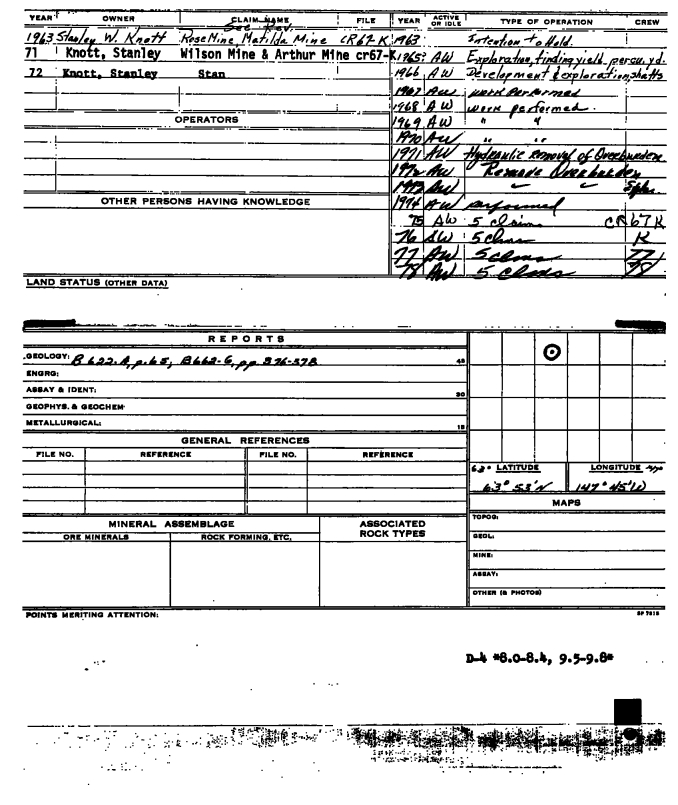 YEAR OWNER CLAIM NAME FILE YEAR ACTIVE OR IDLE TYPE OF OPERATION CREW
See Rev.
1963 Stanley W. Knott Rose Mine, Matilda Mine CR67-K 1963 Intention to Hold.
71 Knott, Stanley Wilson Mine & Arthur Mine cr67-K 1965? AW Exploration, finding yield, per cu. yd.
72 Knott, Stanley Stan 1966 AW Development & exploration, shafts
1967 AW work performed
1968 AW work performed.
OPERATORS 1969 AW " "
1970 AW " "
1971 AW Hydraulic removal of Overburden
1972 AW Remove Overburden
1973 AW " "
OTHER PERSONS HAVING KNOWLEDGE 1974 AW performed
75 AW 5 claims CR67K
76 AW 5 clms K
77 AW 5 clms 77
78 AW 5 clms 78
LAND STATUS (OTHER DATA)
REPORTS
GEOLOGY: B 622-A, p. 65; B 662-G, pp 376-378 45
ENGRG:
ASSAY & IDENT: 30
GEOPHYS. & GEOCHEM
METALLURGICAL: 15
GENERAL REFERENCES
FILE NO. REFERENCE FILE NO. REFERENCE
63° LATITUDE LONGITUDE
63° 53'N 147° 45'W
MAPS
MINERAL ASSEMBLAGE ASSOCIATED ROCK TYPES TOPOG:
ORE MINERALS ROCK FORMING, ETC. GEOL:
MINE:
ASSAY:
OTHER (& PHOTOS)
POINTS MERITING ATTENTION:
D-4 *8.0-8.4, 9.5-9.8*